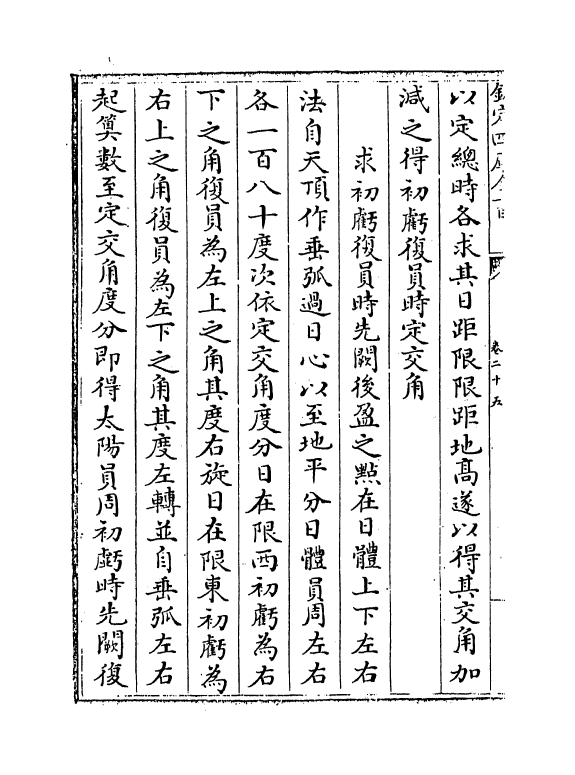 欽定四庫全書
卷二十五
以定總時各求其日距限限距地髙遂以得其交角加
減之得初虧復員時定交角
求初虧復員時先闕後盈之點在日體上下左右
法自天頂作垂弧過日心以至地平分日體員周左右
各一百八十度次依定交角度分日在限西初虧為右
下之角復員為左上之角其度右旋日在限東初虧為
右上之角復員為左下之角其度左轉並自垂弧左右
起算數至定交角度分即得太陽員周初虧時先闕復